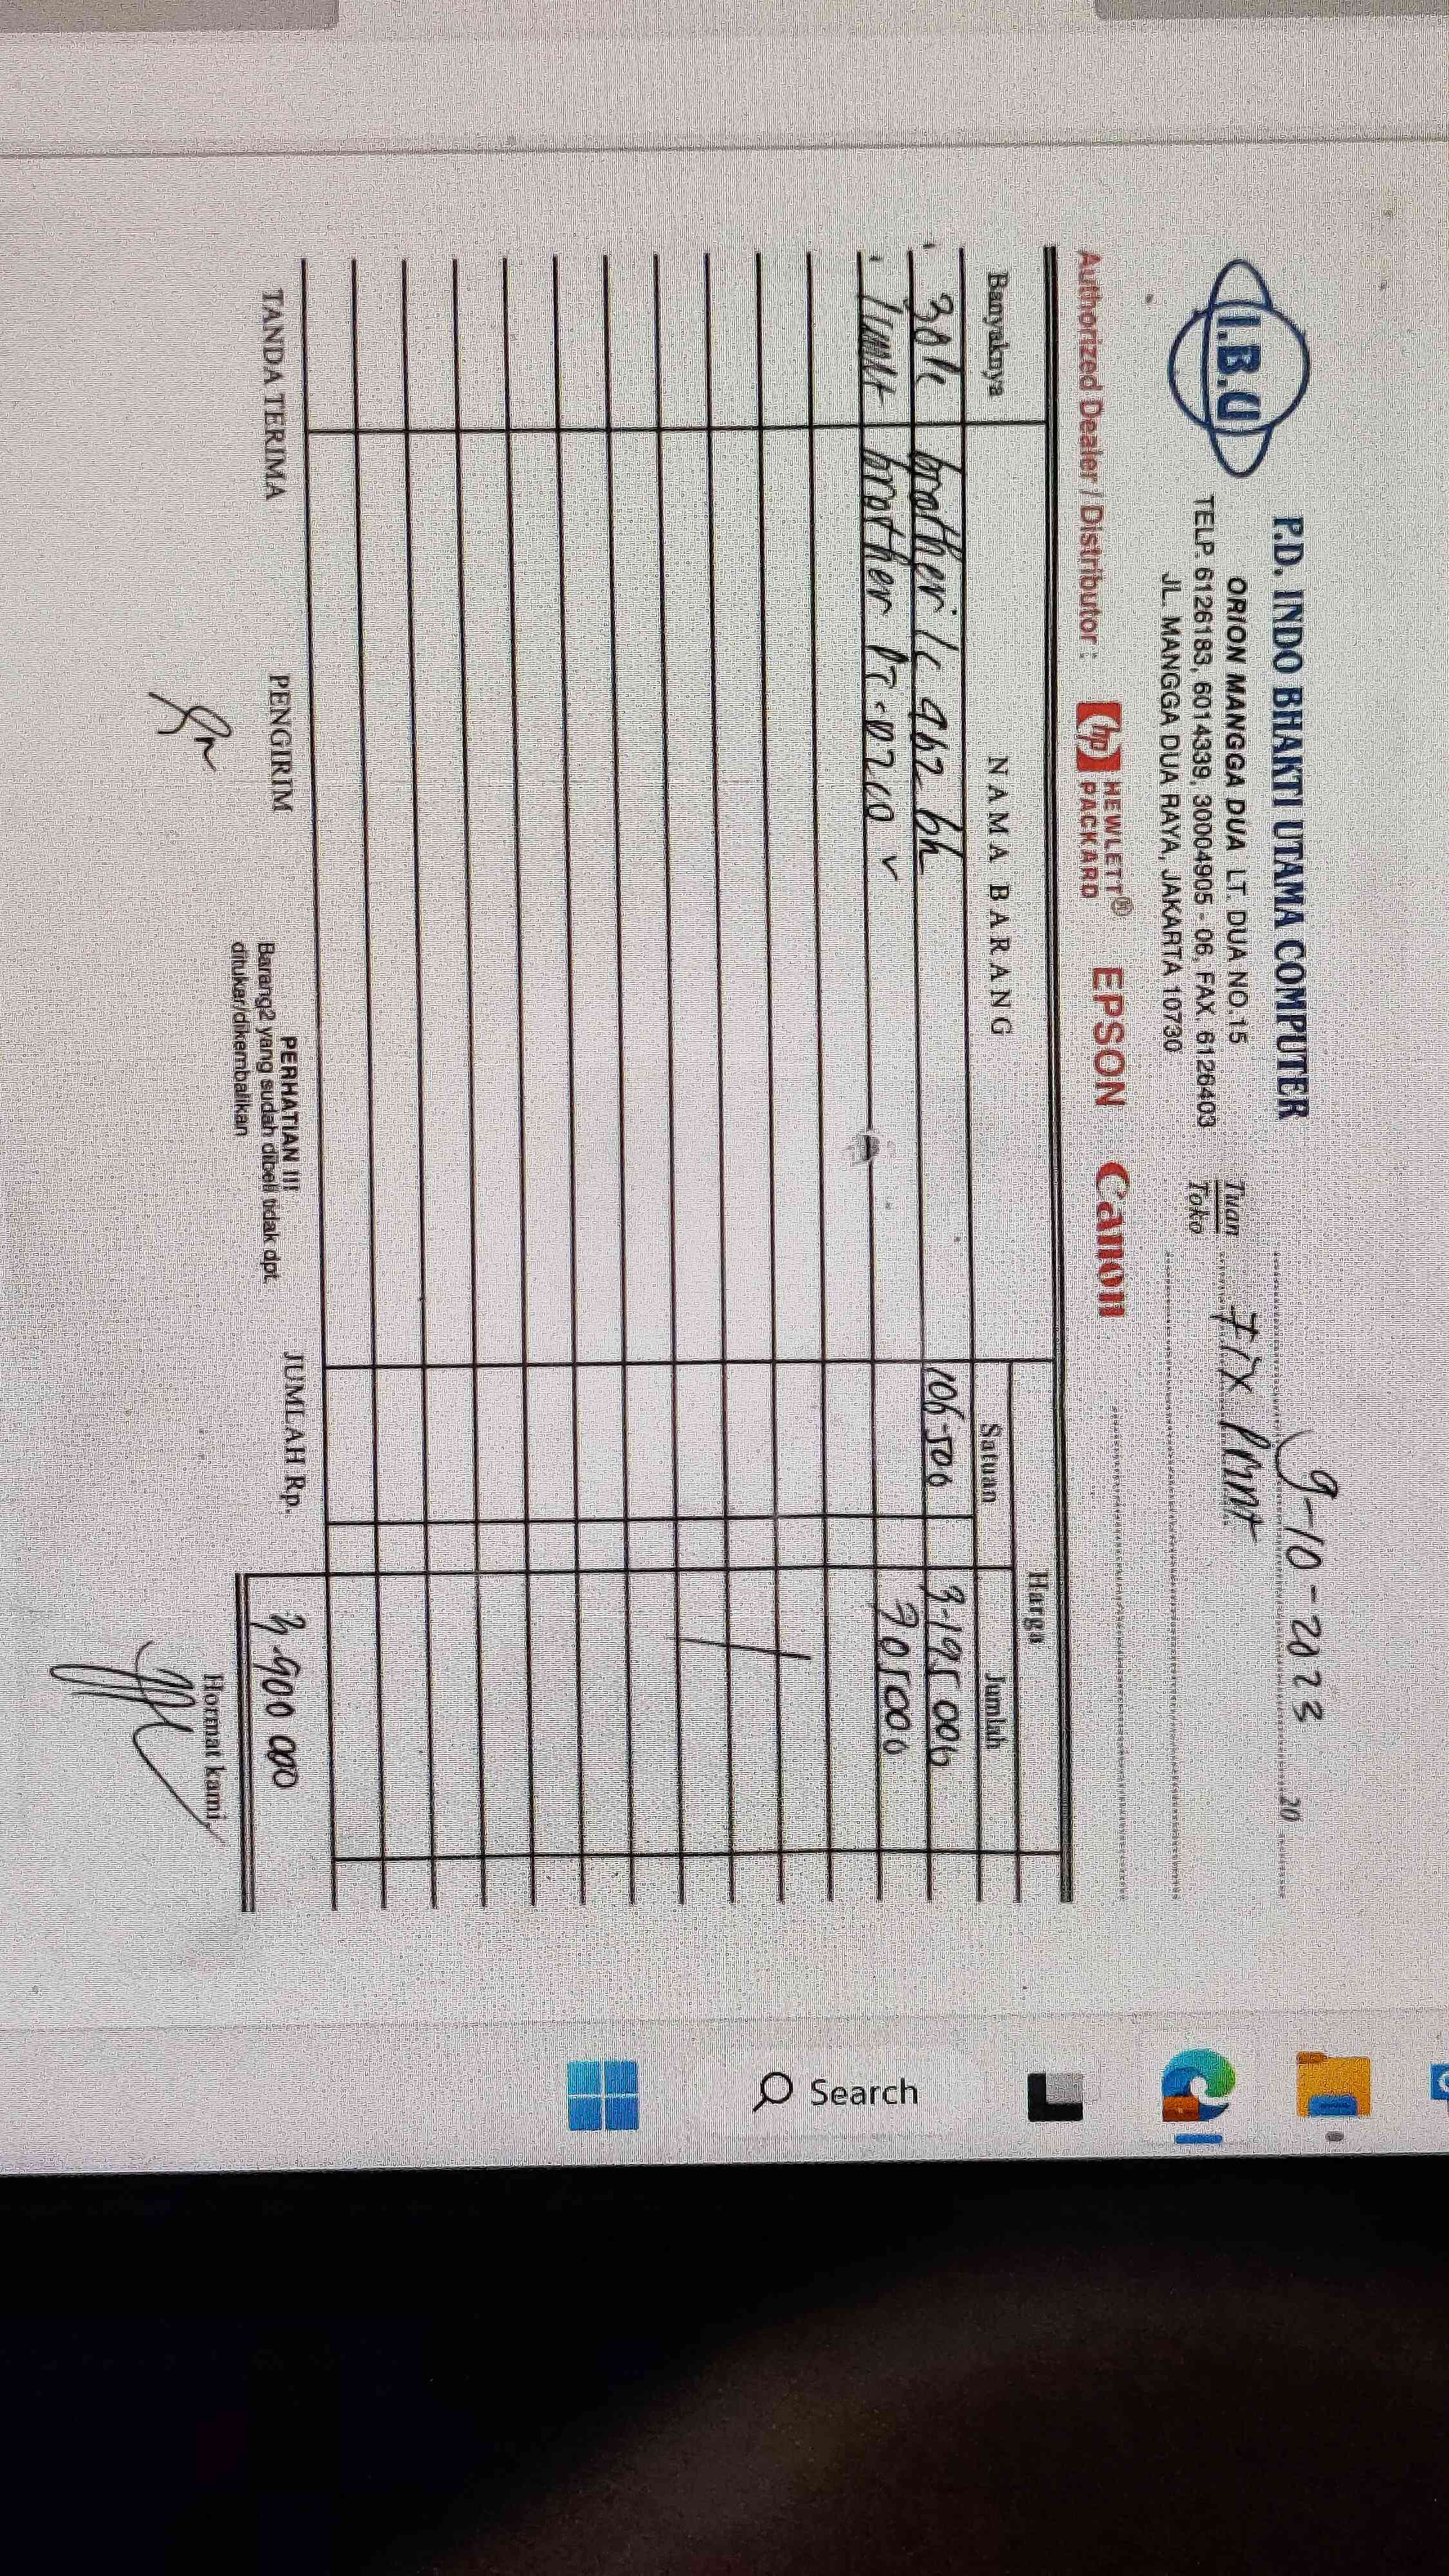 I.B.U
P.D. INDO BHAKTI UTAMA COMPUTER
ORION MANGGA DUA LT. DUA NO.15
TELP. 6126183, 6014339, 30004905 - 06, FAX. 6126403
JL. MANGGA DUA RAYA, JAKARTA 10730
9-10-2023 20
Tuan
Toko
Fix Print
Authorized Dealer / Distributor : hp HEWLETT® PACKARD EPSON Canon
Banyaknya NAMA BARANG Harga
Satuan Jumlah
brother lc 462 bk 106.500 3.195.000
1 unit brother 705000
TANDA TERIMA PENGIRIM
PERHATIAN !!!
Barang2 yang sudah dibeli tidak dpt.
ditukar/dikembalikan
JUMLAH Rp. 3.900 000
Hormat kami,
Search